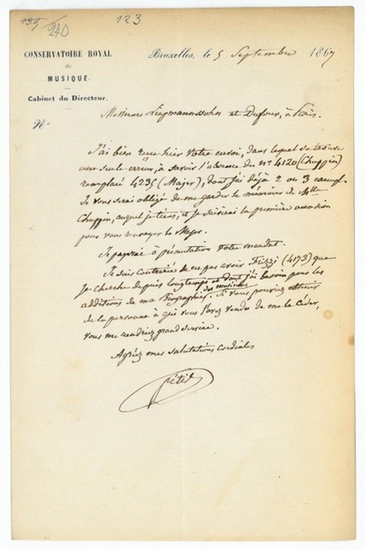 139
240
123
CONSERVATOIRE ROYAL
de
MUSIQUE
Cabinet du Directeur.
N°
Bruxelles, le 5 Septembre 1867
Messieurs Liepmannssohn et Dufour, à Paris.
J'ai bien reçu hier votre envoi, dans lequel se trouve
une seule erreur, à savoir l'absence du n° 4120 (Chuppin)
remplacé 4235 (Major), dont j'ai déjà 2 ou 3 exempl.
Je vous serai obligé de me garder le mémoire de
Chuppin, auquel je tiens, et je saisirai la première occasion
pour vous renvoyer le Major.
Je payerai à présentation votre mandat.
Je suis contrarié de ne pas avoir Fizzi (4173) que
je cherche depuis longtemps et dont j'ai besoin pour les
additions de ma Biographie des musiciens. Si vous pouviez obtenir
de la personne à qui vous l'avez vendu de me le céder,
vous me rendriez grand service.
Agréez mes salutations cordiales
Fétis